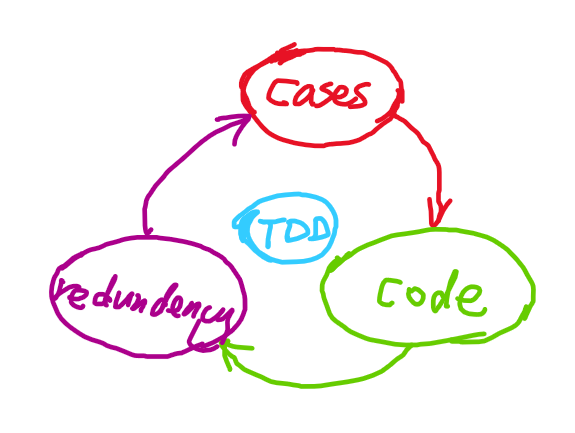 cases
TDD
code
redundency